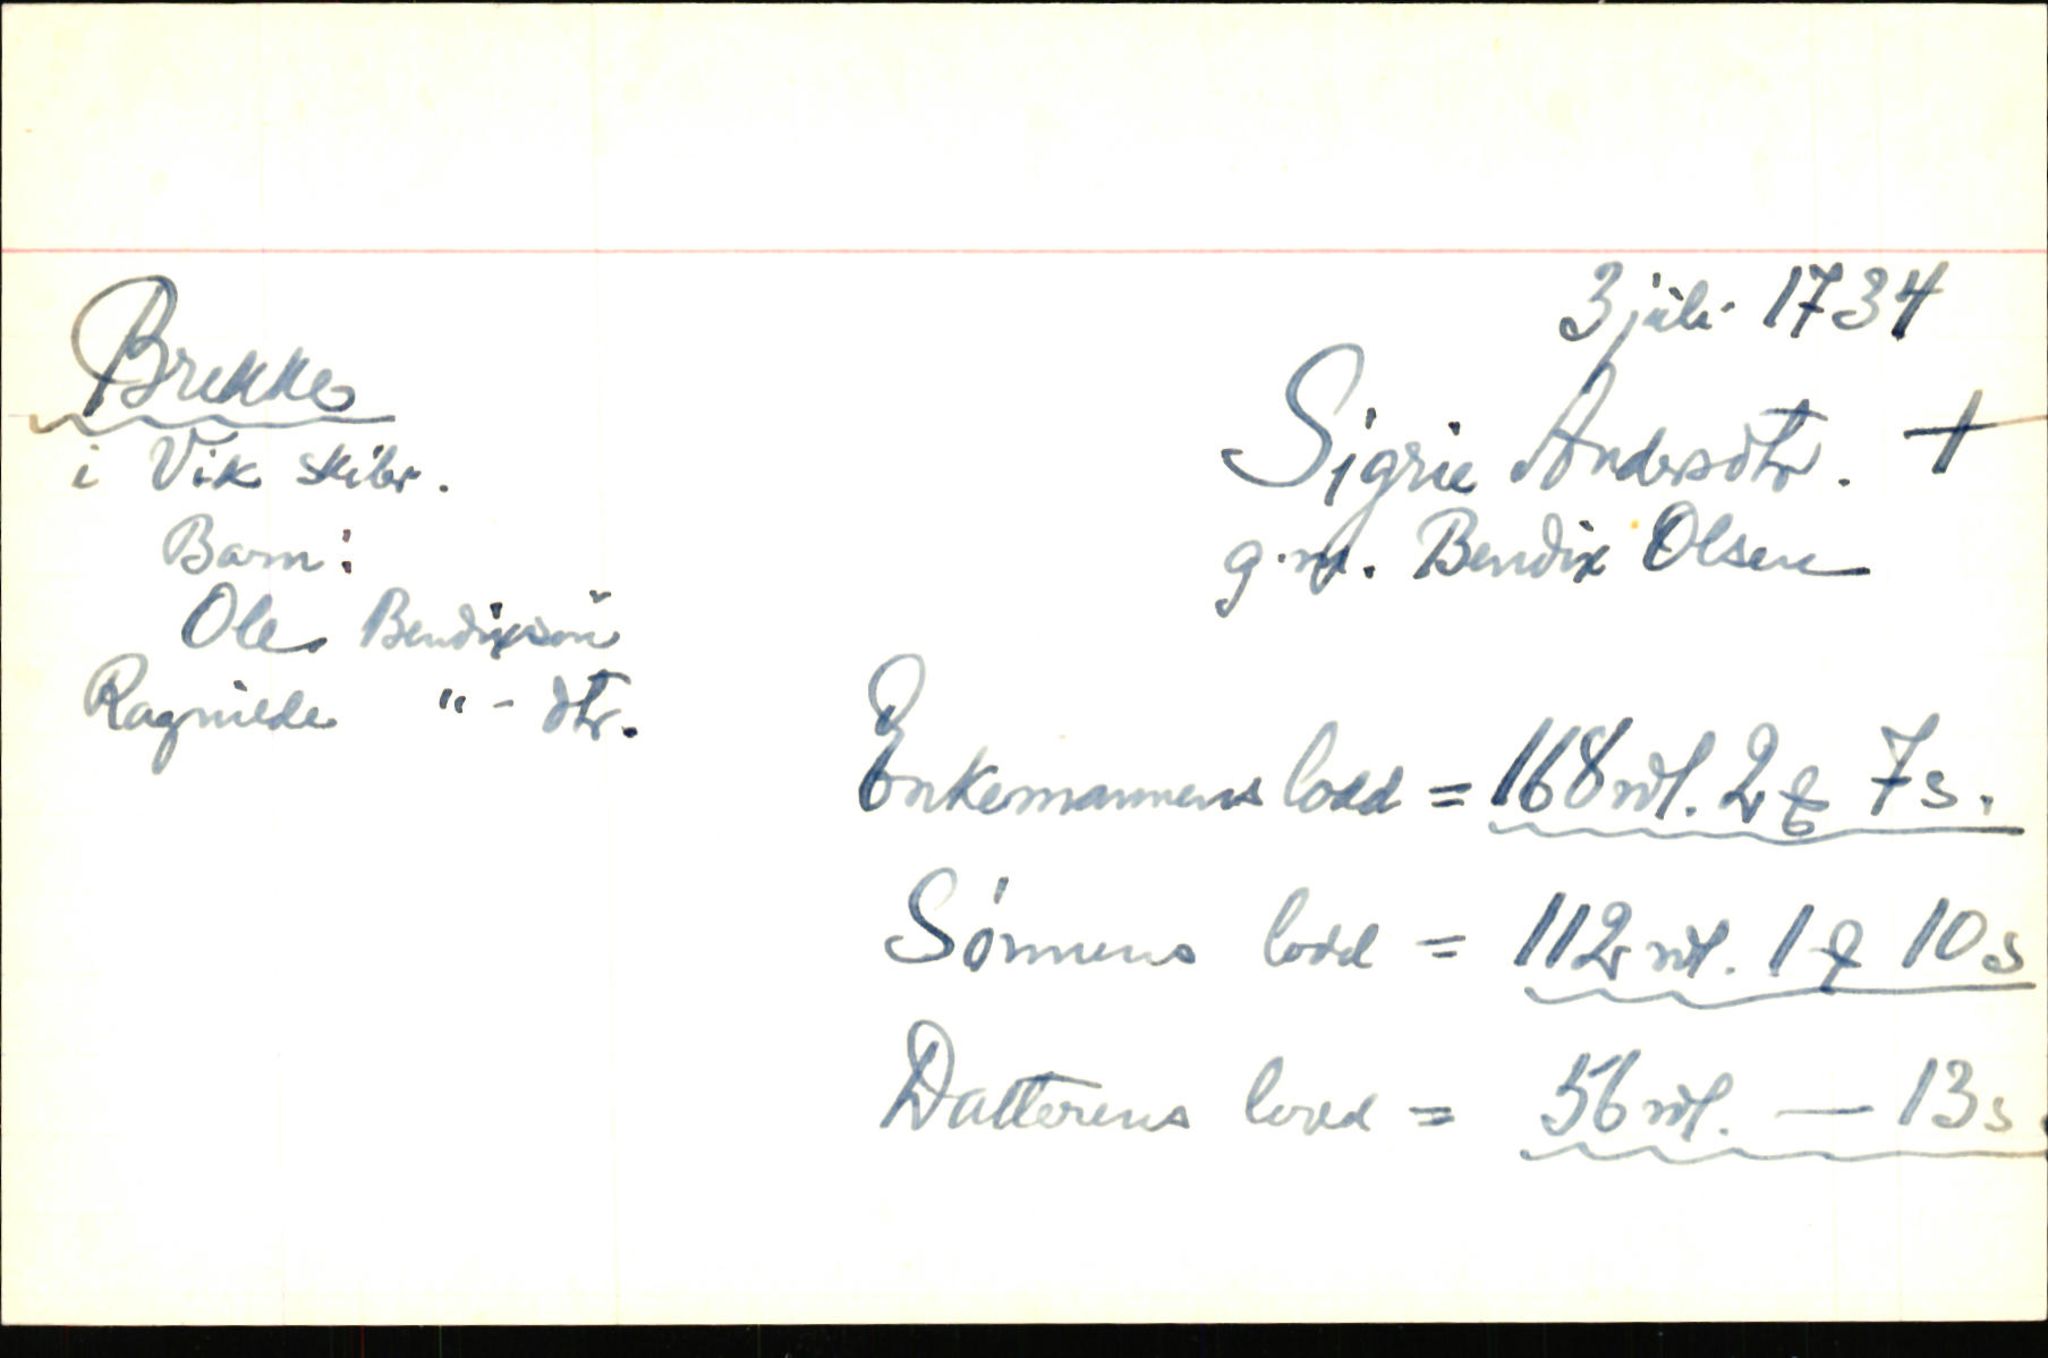 3 juli 1734
Brekke
i Vik skibr.
Barn:
Ole Bendixson
Ragnilde " - dtr.
Sigrie Andersdtr. +
g.m. Bendix Olsen
Enkemannens lodd = 168 rdl. 2 7 s.
Sønnens lodd = 112 rdl. 1 10 s
Datterens lodd = 56 rdl. — 13 s.